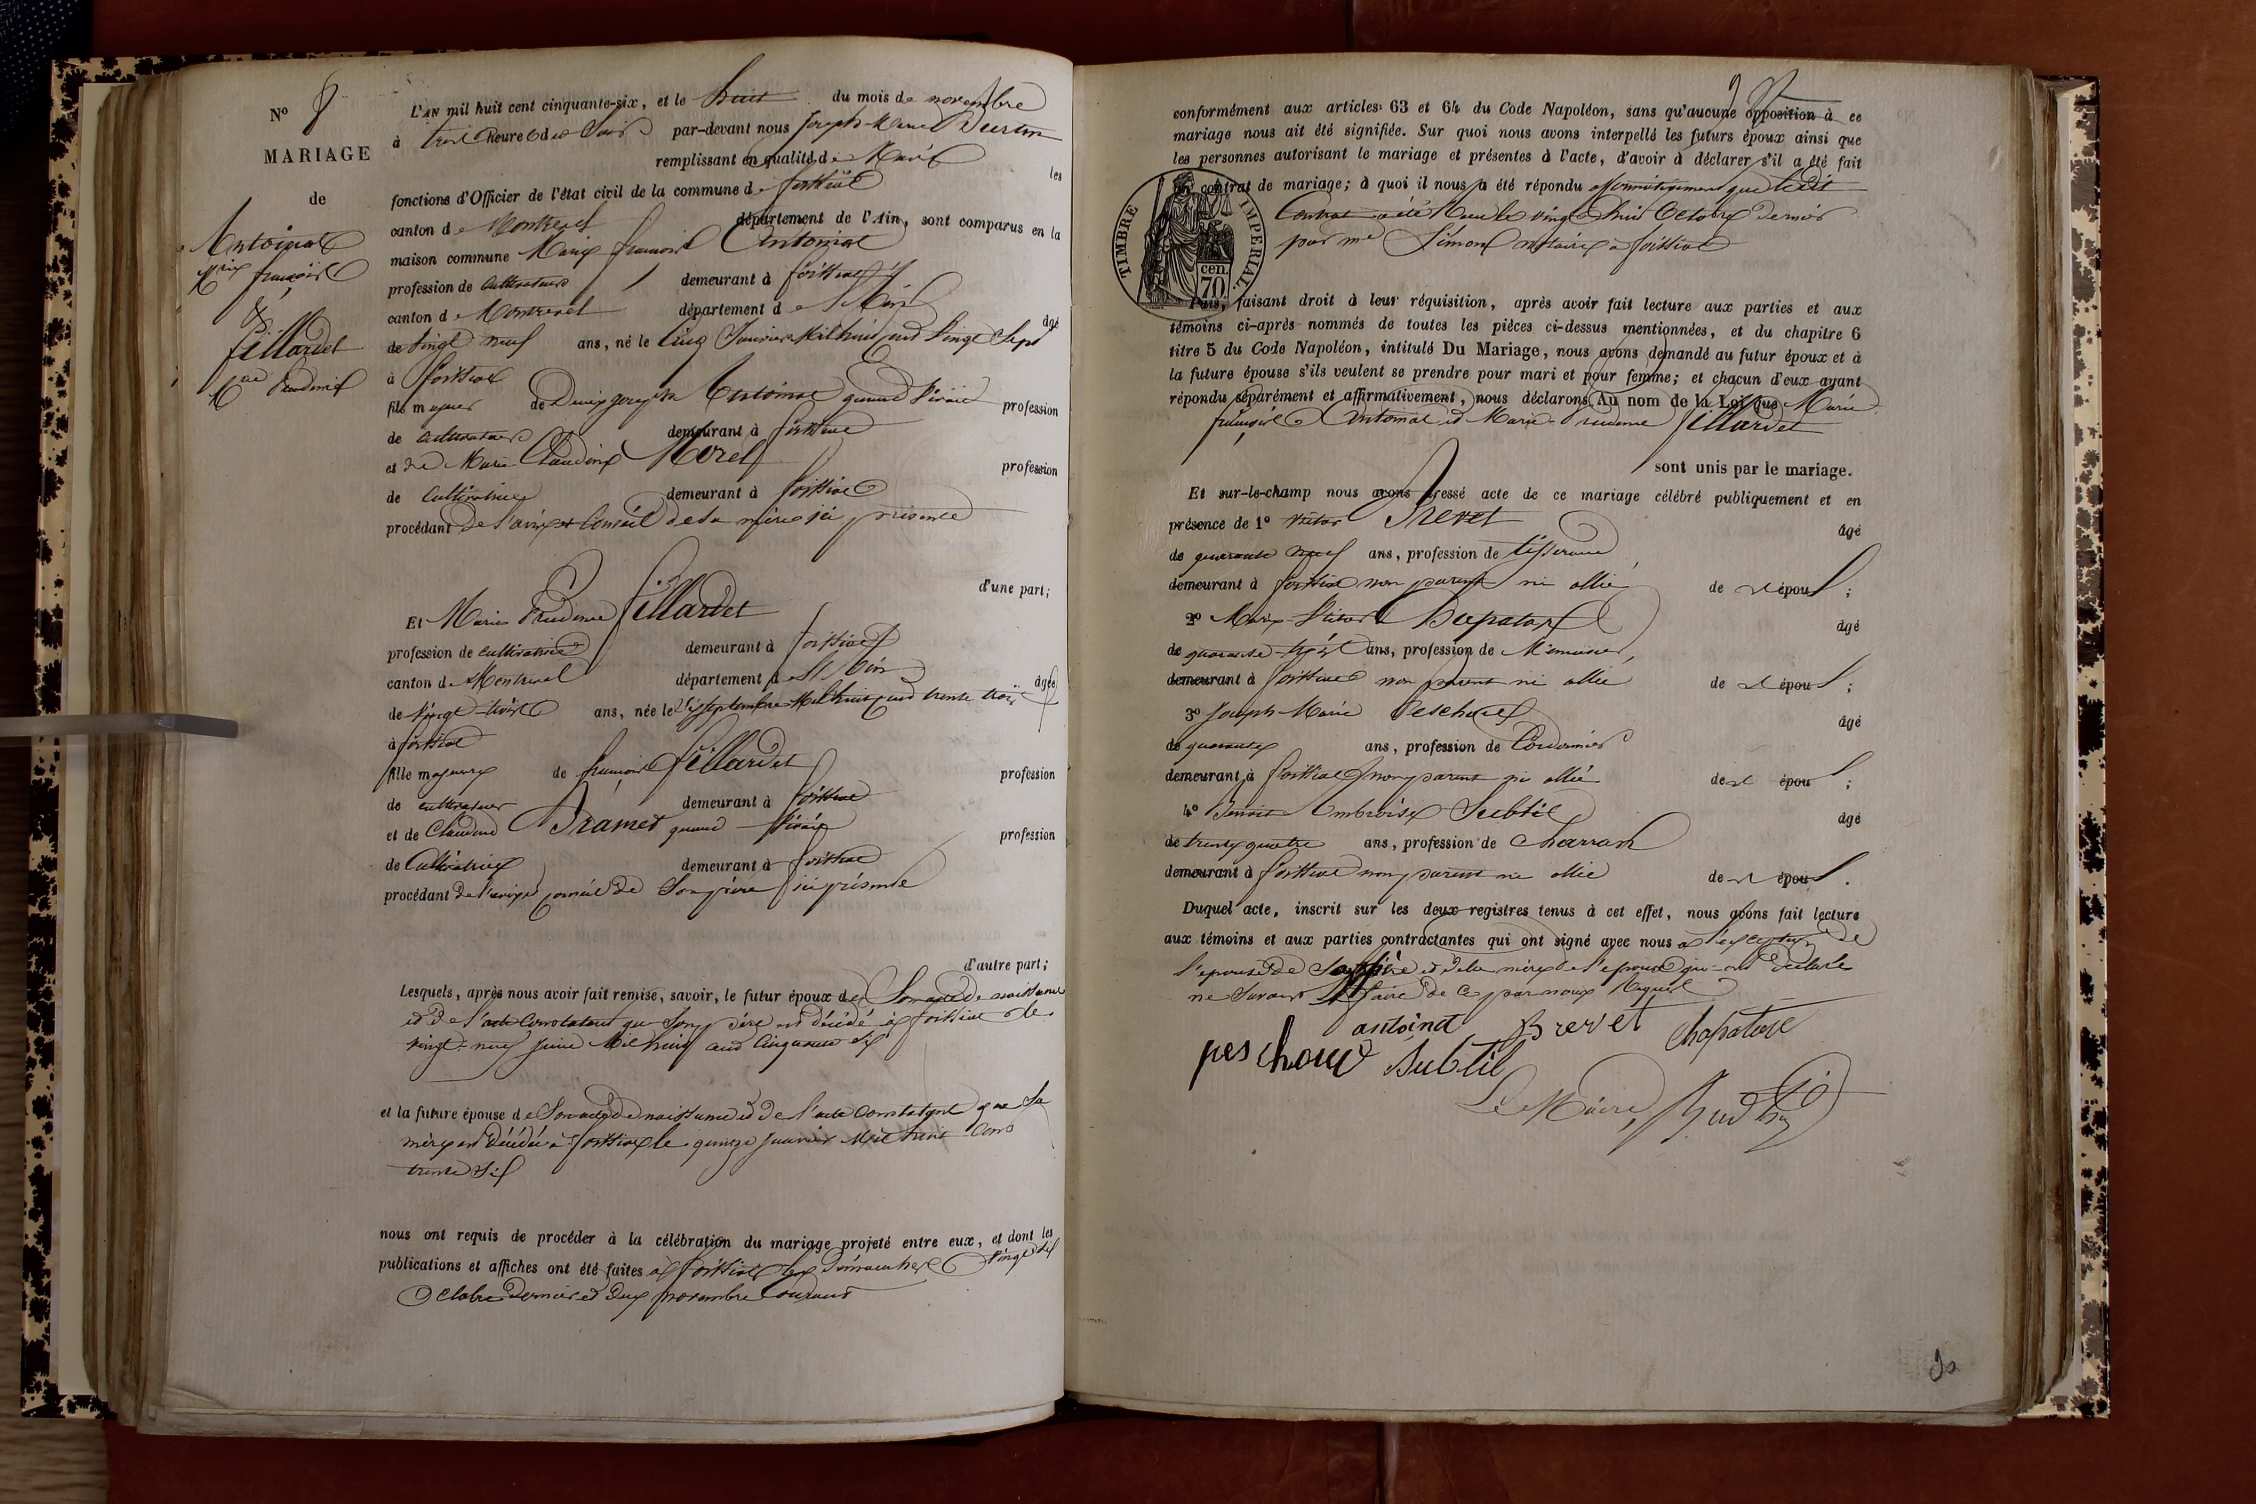 N° 8
MARIAGE
de
Antoinat
Mie françois
&
fillardet
Mie Prudence
L'AN mil huit cent cinquante-six, et le huit du mois de novembre
à trois heures du Soir par-devant nous Joseph-Marie
remplissant en qualité de Maire les
fonctions d'Officier de l'état civil de la commune de foissiat
canton de Montrevel département de l'Ain, sont comparus en la
maison commune Marie françois Antoinat
profession de Cultivateur demeurant à foissiat
canton de Montrevel département de l'Ain âgé
de vingt neuf ans, né le Cinq Janvier Mil huit cent vingt Sept
à foissiat
fils majeur de Denis joseph Antoinat quand vivait profession
de cultivateur demeurant à foissiat
et de Marie Claudine Morel profession
de Cultivatrice demeurant à foissiat
procédant de l'avis et Conseil de sa mère ici présente
d'une part;
Et Marie Prudence fillardet
profession de cultivatrice demeurant à foissiat
canton de Montrevel département de l'Ain âgée
de vingt trois ans, née le septembre Mil huit cent trente trois
à foissiat
fille majeure de françois fillardet profession
de cultivateur demeurant à foissiat
et de Claudine quand vivait profession
de Cultivatrice demeurant à foissiat
procédant de l'avis et conseil de Son père ici présent
d'autre part;
Lesquels, après nous avoir fait remise, savoir, le futur époux de Son acte de naissance
et de l'acte Constatant que Son père est décédé à foissiat le
vingt-neuf Juin Mil huit cent Cinquante six
et la future épouse de Son acte de naissance et de l'acte Constatant que Sa
mère est décédée à foissiat le quinze Janvier Mil huit Cent
trente Six
nous ont requis de procéder à la célébration du mariage projeté entre eux, et dont les
publications et affiches ont été faites à foissiat les Dimanches vingt six
Octobre dernier et deux novembre Courant
conformément aux articles 63 et 64 du Code Napoléon, sans qu'aucune opposition à ce
mariage nous ait été signifiée. Sur quoi nous avons interpellé les futurs époux ainsi que
les personnes autorisant le mariage et présentes à l'acte, d'avoir à déclarer s'il a été fait
un contrat de mariage; à quoi il nous a été répondu affirmativement que ledit
Contrat a été Reçu le vingt huit Octobre dernier
par me Simon notaire à foissiat
TIMBRE IMPERIAL.
70 cen.
Puis, faisant droit à leur réquisition, après avoir fait lecture aux parties et aux
témoins ci-après nommés de toutes les pièces ci-dessus mentionnées, et du chapitre 6
titre 5 du Code Napoléon, intitulé Du Mariage, nous avons demandé au futur époux et à
la future épouse s'ils veulent se prendre pour mari et pour femme; et chacun d'eux ayant
répondu séparément et affirmativement, nous déclarons Au nom de la Loi que Marie
françois Antoinat et Marie-Prudence fillardet
sont unis par le mariage.
Et sur-le-champ nous avons dressé acte de ce mariage célébré publiquement et en
présence de 1° Victor Brevet âgé
de quarante neuf ans, profession de tisserand
demeurant à foissiat non parent ni allié de époux;
2° Marie-Victor âgé
de quarante-trois ans, profession de Menuisier,
demeurant à foissiat non parent ni allié de époux;
3° Joseph-Marie Peschoux âgé
de quarante ans, profession de Cordonnier
demeurant à foissiat non parent ni allié de époux;
4° Benoit Ambroise Subtil âgé
de trente quatre ans, profession de Charron
demeurant à foissiat non parent ni allié de époux.
Duquel acte, inscrit sur les deux registres tenus à cet effet, nous avons fait lecture
aux témoins et aux parties contractantes qui ont signé avec nous à l'exception de
l'épouse de Son père et de la mère de l'époux qui ont déclaré
ne Savoir le faire de Ce par nous Requis
antoinat Brevet Chapatou
peschoux Subtil
Le Maire,